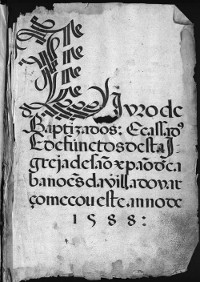 Livro de
Baptizados: E casados
E defunctos desta I
greja de saõ xpaõ de ca
banoẽs da villa dovar
começou este anno de
1588: